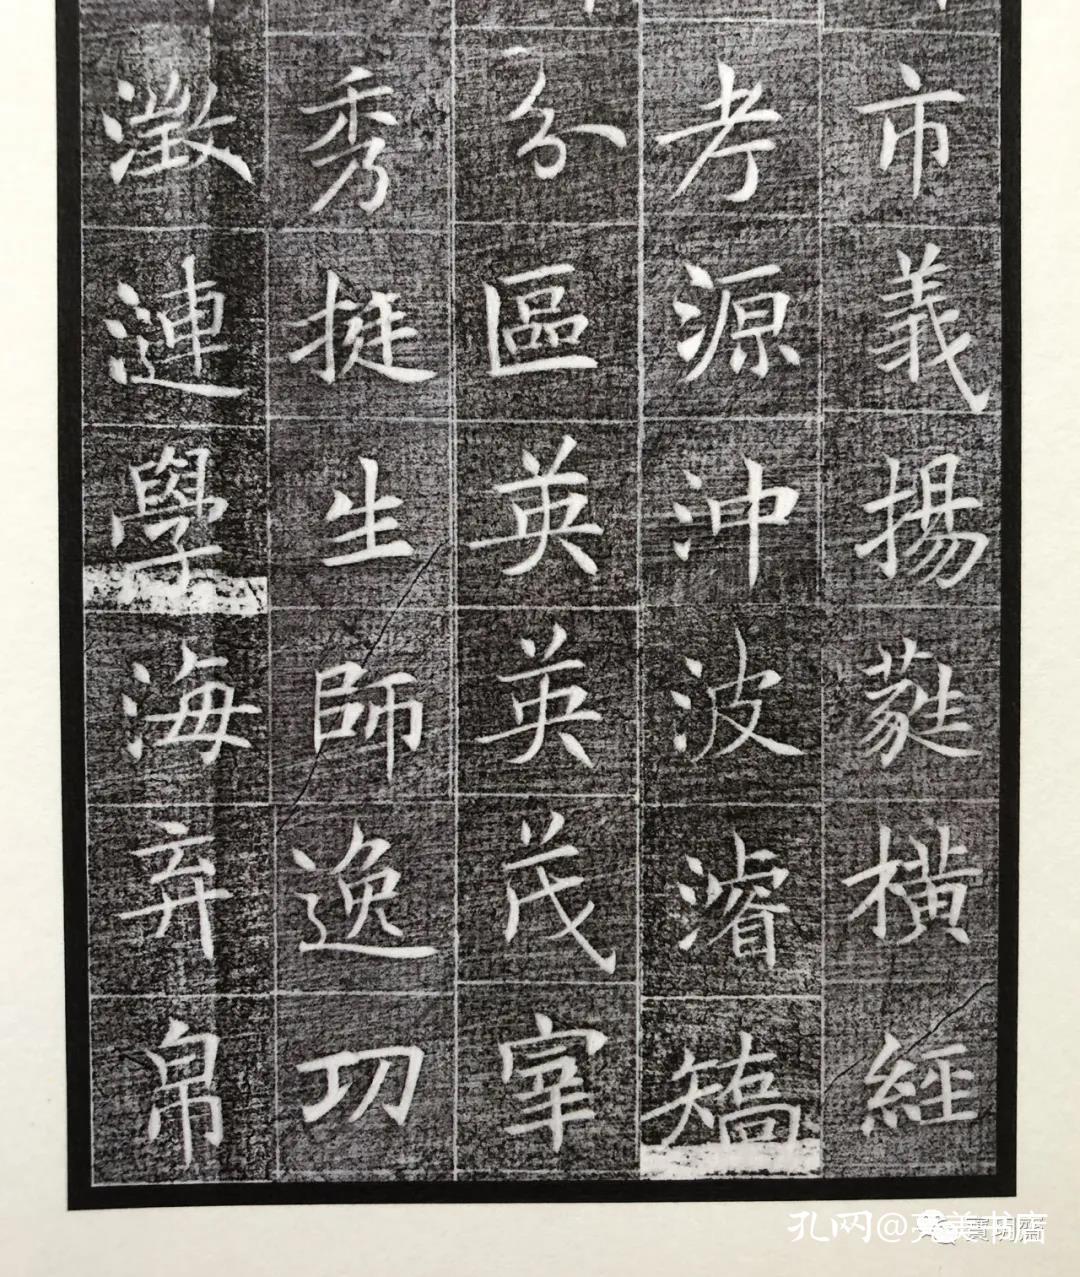 市義揚蕤橫經
考源沖波濬矯
分區英英茂宰
秀挺生師逸功
澂漣學海弃帛
孔网@亮美书店